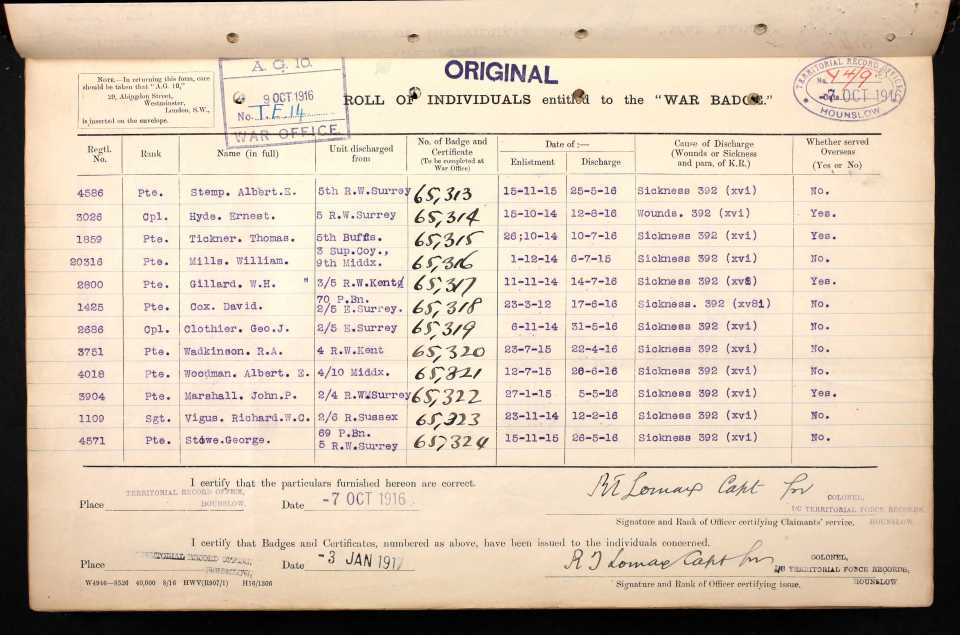 NOTE.—In returning this form, care
should be taken that "A.G. 10,"
29, Abingdon Street,
Westminster,
London, S.W.,
is inserted on the envelope.
A.G. 10.
9 OCT 1916
No. T.F. 14
WAR OFFICE.
ORIGINAL
ROLL OF INDIVIDUALS entitled to the "WAR BADGE."
TERRITORIAL RECORD OFFICE,
No. 449
Date 7 OCT 1916
HOUNSLOW
Regtl. No. Rank Name (in full) Unit discharged from No. of Badge and Certificate (To be completed at War Office) Date of :— Enlistment Discharge Cause of Discharge (Wounds or Sickness and para. of K.R.) Whether served Overseas (Yes or No)
4586 Pte. Stemp. Albert.E. 5th R.W.Surrey 65,313 15-11-15 25-5-16 Sickness 392 (xvi) No.
3026 Cpl. Hyde. Ernest. 5 R.W.Surrey 65,314 15-10-14 12-8-16 Wounds. 392 (xvi) Yes.
1859 Pte. Tickner. Thomas. 5th Buffs. 65,315 26;10-14 10-7-16 Sickness 392 (xvi) Yes.
3 Sup.Coy.,
20316 Pte. Mills. William. 9th Middx. 65,316 1-12-14 6-7-15 Sickness 392 (xvi) No.
2800 Pte. Gillard. W.H. " 3/5 R.W.Kent 65,317 11-11-14 14-7-16 Sickness 392 (xvi) Yes.
70 P.Bn.
1425 Pte. Cox. David. 2/5 E.Surrey. 65,318 23-3-12 17-6-16 Sickness. 392 (xv8i) No.
2686 Cpl. Clothier. Geo.J. 2/5 E.Surrey 65,319 6-11-14 31-5-16 Sickness 392 (xvi) No.
3751 Pte. Wadkinson. R.A. 4 R.W.Kent 65,320 23-7-15 22-4-16 Sickness 392 (xvi) No.
4018 Pte. Woodman. Albert E. 4/10 Middx. 65,321 12-7-15 20-6-16 Sickness 392 (xvi) No.
3904 Pte. Marshall. John.P. 2/4 R.W.Surrey 65,322 27-1-15 5-5-16 Sickness 392 (xvi) Yes.
1109 Sgt. Vigus. Richard.W.C. 2/6 R.Sussex 65,323 23-11-14 12-2-16 Sickness 392 (xvi) No.
69 P.Bn.
4571 Pte. Stowe.George. 5 R.W.Surrey 65,324 15-11-15 26-5-16 Sickness 392 (xvi) No.
I certify that the particulars furnished hereon are correct.
Place TERRITORIAL RECORD OFFICE, HOUNSLOW. Date -7 OCT 1916
RT Lomax Capt for
COLONEL,
I/C TERRITORIAL FORCE RECORDS,
Signature and Rank of Officer certifying Claimants' service. HOUNSLOW.
I certify that Badges and Certificates, numbered as above, have been issued to the individuals concerned.
Place TERRITORIAL RECORD OFFICE, HOUNSLOW. Date -3 JAN 1917
R T Lomax Capt for
COLONEL,
I/C TERRITORIAL FORCE RECORDS,
HOUNSLOW
W4946—8526 40,000 8/16 HWV(R907/1) H16/1306
Signature and Rank of Officer certifying issue.